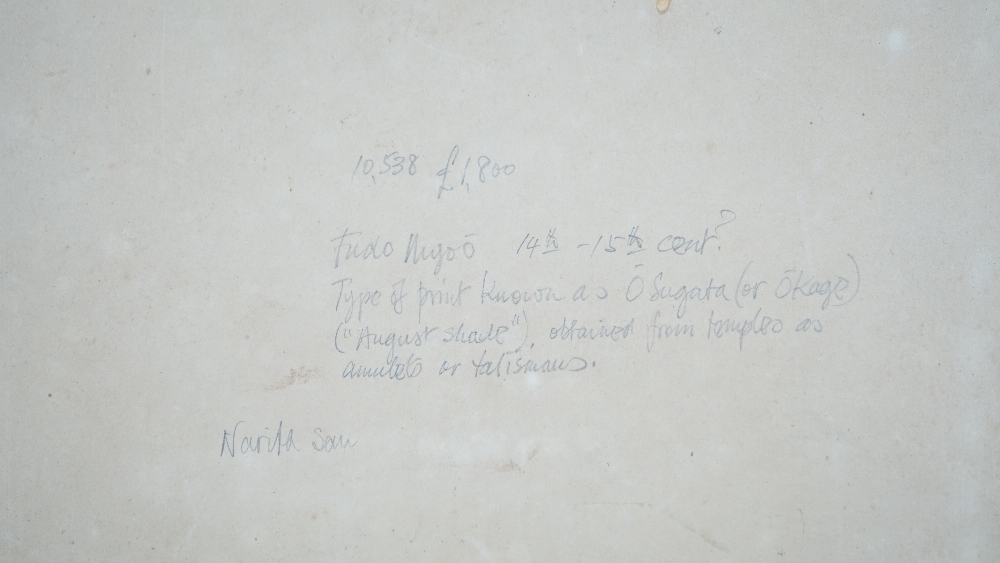 10,538 £1,800
Fudo Myoō 14th - 15th cent?
Type of print known as Ō Sugata (or Ōkage)
("August shade"), obtained from temples as
amulets or talismans.
Narita San